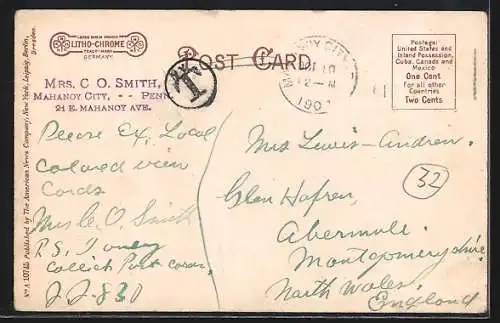 LITHO-CHROME
TRADE-MARK
GERMANY
POST CARD
MAHANOY CITY
10
2 - M
190
T
Postage:
United States
and Island
Possessions,
Cuba, Canada
and Mexico
One Cent
For all other
Countries
Two Cents
MRS. C O. SMITH,
MAHANOY CITY, - - PENN
21 E. MAHANOY AVE.
Please Ex. Local
colored view
Cards
Mrs C. O. Smith
P.S. I only
Collect Post cards.
J.J-830
Mrs Lewis-Andrew.
Glan Hafren,
Abermule.
Montgomeryshire
North Wales.
England
32
No. A 10745 Published by The American News Company, New York, Leipzig, Berlin, Dresden.